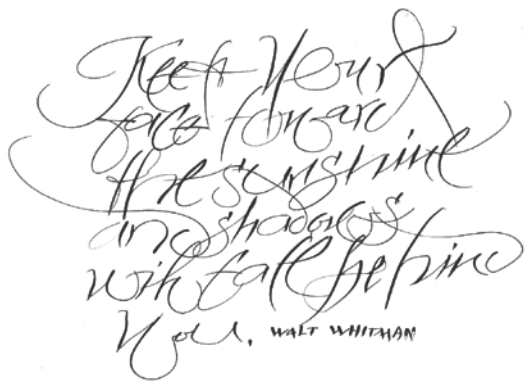 Keep Your
face toward
the sunshine
and shadows
will fall behind
You. WALT WHITMAN